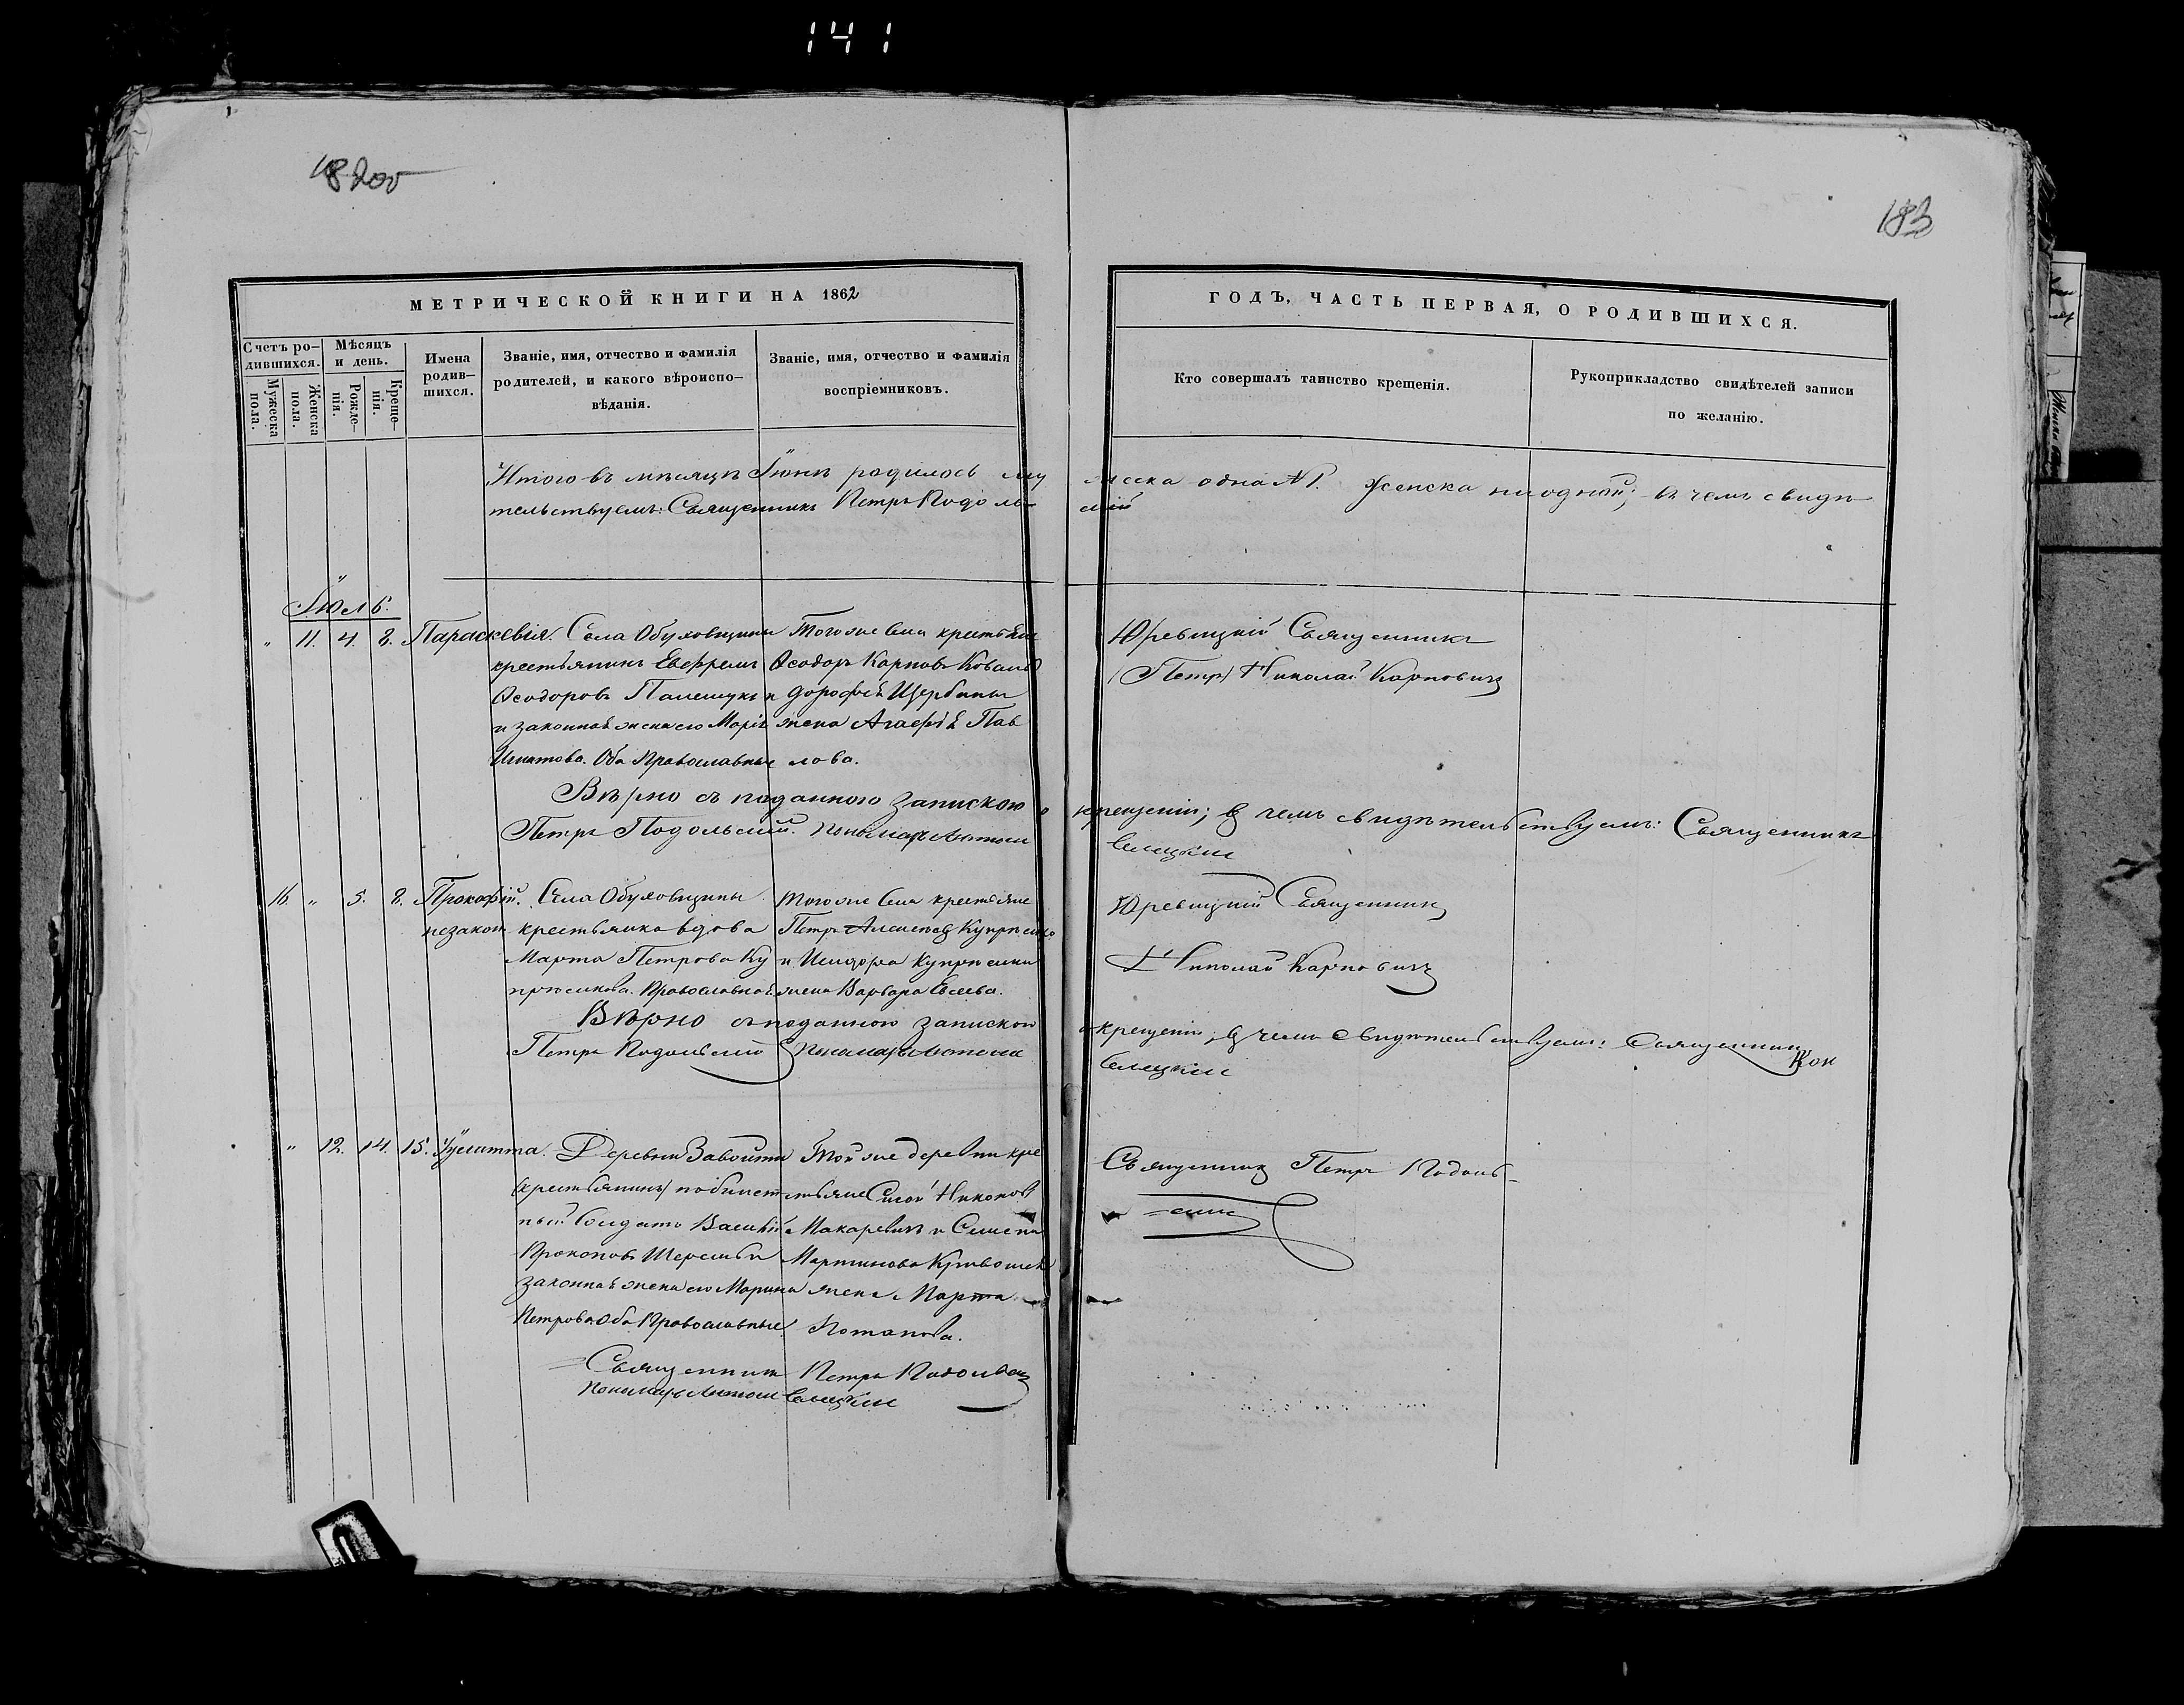 141
18 200
183
МЕТРИЧЕСКОЙ КНИГИ НА 1862
ГОДЪ, ЧАСТЬ ПЕРВАЯ, О РОДИВШИХСЯ.
Счетъ ро–
дившихся.
Мужеска
пола.
Женска
пола.
Мѣсяцъ
и день.
Рожде–
нія.
Креще–
нія.
Имена
родив–
шихся.
Званіе, имя, отчество и фамилія
родителей, и какого вѣроиспо–
вѣданія.
Званіе, имя, отчество и фамилія
воспріемниковъ.
Кто совершалъ таинство крещенія.
Рукоприкладство свидѣтелей записи
по желанію.
Итого въ мѣсяцѣ Іюнѣ родилось му
жеска одна №1. Женска ни одной; въ чемъ свидѣ
тельствуемъ: Священникъ Петръ Подоль
скій
Іюль.
" 11. 4. 8. Параскевія.
Села Обуховщины
крестьянинъ Евфремъ
Ѳеодоровъ Палешукъ и
законная жена его Марія
Игнатова. Оба Православные
Тогоже села крестьяне
Ѳеодоръ Карповъ Коваль
и Дорофея Щербины
жена Агафія Пав
лова.
Юревицкій Священникъ
(Петръ) Николай Карповичъ
Вѣрно съ поданною запискою о
крещеніи; в чемъ свидѣтельствуемъ: Священникъ
Петръ Подольскій. Пономарь Антоній
Селицкій
16. " 5. 8. Прокофій.
незакон
Села Обуховщины
крестьянка вдова
Марта Петрова Ку
прѣенкова. Православная
Тогоже села крестьяне
Петръ Алексѣевъ Купрѣенко
и Исидора Купрѣенки
жена Варвара Евсеева.
Юревицкій Священникъ
Николай Карповичъ
Вѣрно съ поданною запискою
о крещеніи; в чемъ свидѣтельствуемъ: Священникъ
Петръ Подольскій Пономарь Антоній
Селицкій
" 12. 14. 15. Іулитта.
Деревни Завойти
(крестьянинъ)
солдатъ Василій
Прокоповъ и
законная жена его Марина
Петрова. Оба Православные
Той же деревни кре
стьяне Сисой Никоновъ
Макаревичъ и Семена
Мартинова
жена Марта
Потапова.
Священникъ Петръ Подоль–
скій
Священникъ Петръ Подольскій
Пономарь Антоній Селицкій